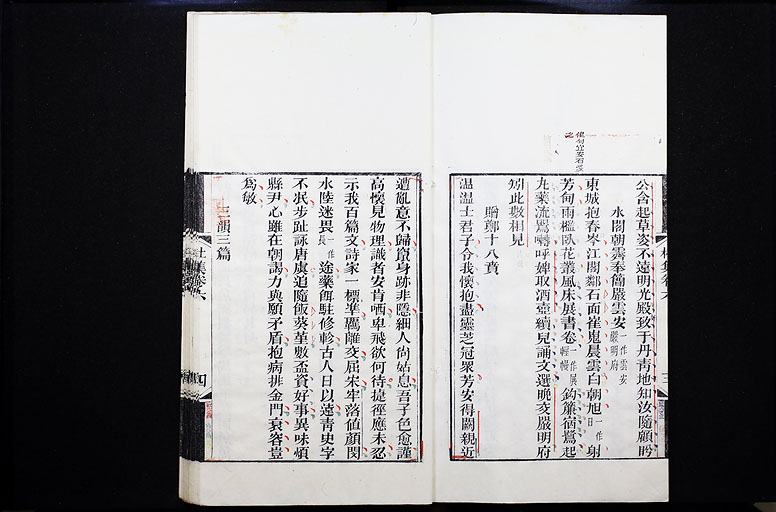 公舍起草姿不遠明光殿致于丹青地知汝隨顧眄
水閣朝霽奉簡嚴雲安一作雲安嚴明府
東城抱春岑江閣鄰石面崔嵬晨雲白朝旭一作日射
芳甸雨檻臥花叢風床展書卷一作展輕幔鉤簾宿鷺起
丸藥流鶯囀呼婢取酒壺續兒誦文選晚交嚴明府
矧此數相見
贈鄭十八賁
溫溫士君子令我懷抱盡靈芝冠眾芳安得闕親近
遭亂意不歸竄身跡非隱細人尚姑息吾子色愈謹
高懷見物理識者安肯哂卑飛欲何待捷徑應未忍
示我百篇文詩家一標準羈離交屈宋牢落値顏閔
水陸迷畏一作長途藥餌駐修軫古人日以遠青史字
不泯步趾詠唐虞追隨飯葵堇數盃資好事異味煩
縣尹心雖在朝謁力與願矛盾抱病排金門衰容豈
爲敏
三韻三篇
杜集卷六
四